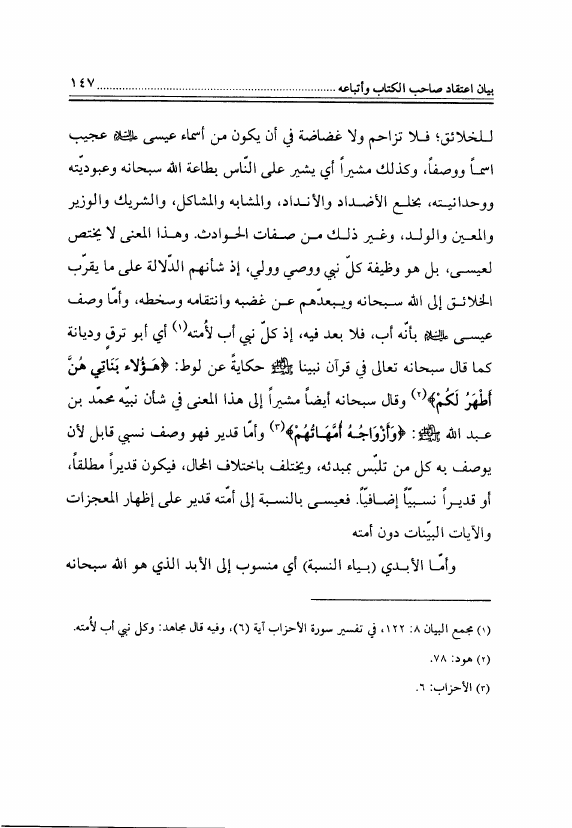 بيان اعتقاد صاحب الكتاب وأتباعه ........................................................................ ١٤٧
للخلائق؛ فلا تزاحم ولا غضاضة في أن يكون من أسماء عيسى عليه السلام عجيب
اسماً ووصفاً، وكذلك مشيراً أي يشير على النّاس بطاعة الله سبحانه وعبوديّته
ووحدانيته، بخلع الأضداد والأنداد، والمشابه والمشاكل، والشريك والوزير
والمعين والولد، وغير ذلك من صفات الحوادث. وهذا المعنى لا يختص
لعيسى، بل هو وظيفة كلّ نبي ووصي وولي، إذ شأنهم الدّلالة على ما يقرّب
الخلائق إلى الله سبحانه ويبعدّهم عن غضبه وانتقامه وسخطه، وأمّا وصف
عيسى عليه السلام بأنّه أب، فلا بعد فيه، إذ كلّ نبي أب لأمته(١) أي أبو ترقٍ وديانة
كما قال سبحانه تعالى في قرآن نبينا ﷺ حكايةً عن لوط: ﴿هَؤُلاء بَنَاتِي هُنَّ
أَطْهَرُ لَكُمْ﴾(٢) وقال سبحانه أيضاً مشيراً إلى هذا المعنى في شأن نبيّه محمّد بن
عبد الله ﷺ: ﴿وَأَزْوَاجُهُ أُمَّهَاتُهُمْ﴾(٣) وأمّا قدير فهو وصف نسبي قابل لأن
يوصف به كل من تلبّس بمبدئه، ويختلف باختلاف المحال، فيكون قديراً مطلقاً،
أو قديراً نسبيّاً إضافيّاً. فعيسى بالنسبة إلى أمّته قدير على إظهار المعجزات
والآيات البيّنات دون أمته
وأمّا الأبدي (بياء النسبة) أي منسوب إلى الأبد الذي هو الله سبحانه
(١) مجمع البيان ٨: ١٢٢، في تفسير سورة الأحزاب آية (٦)، وفيه قال مجاهد: وكل نبي أب لأمته.
(٢) هود: ٧٨.
(٣) الأحزاب: ٦.